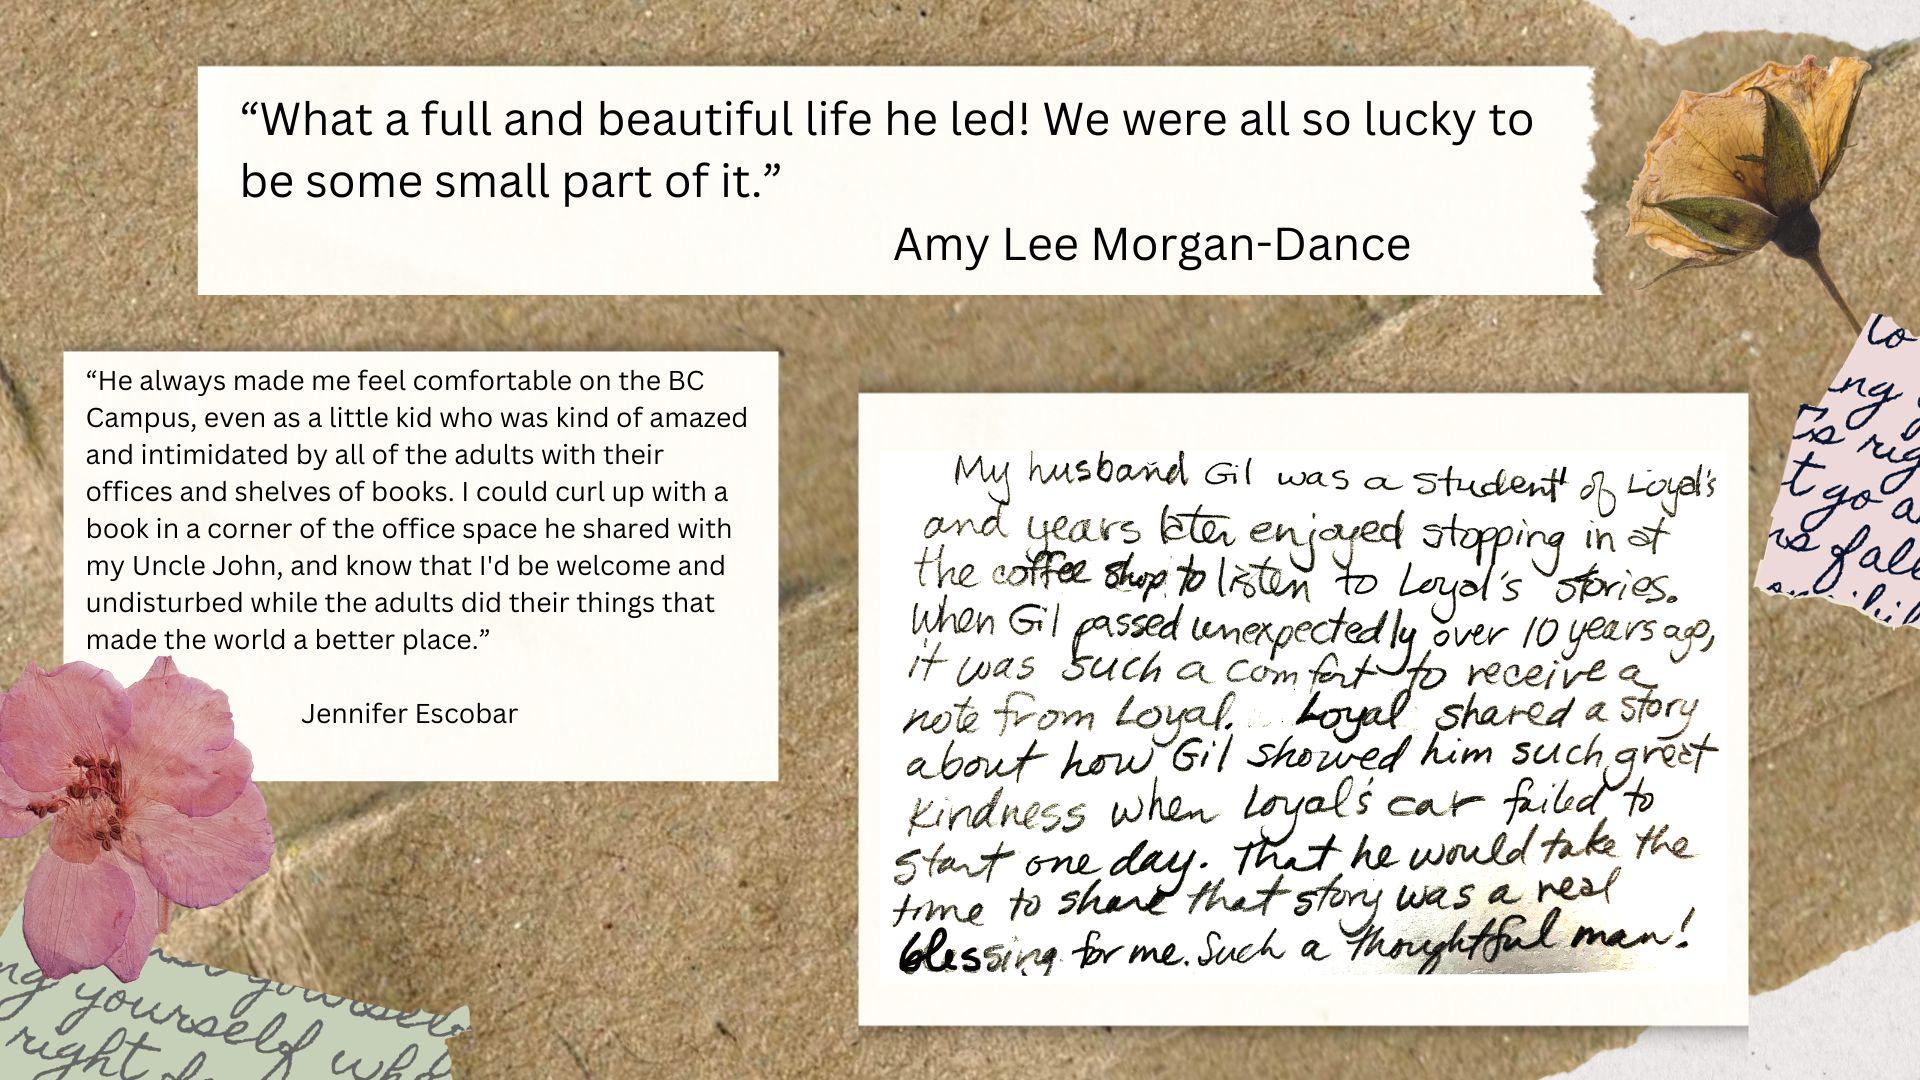 “What a full and beautiful life he led! We were all so lucky to
be some small part of it.”
Amy Lee Morgan-Dance
“He always made me feel comfortable on the BC
Campus, even as a little kid who was kind of amazed
and intimidated by all of the adults with their
offices and shelves of books. I could curl up with a
book in a corner of the office space he shared with
my Uncle John, and know that I'd be welcome and
undisturbed while the adults did their things that
made the world a better place.”
Jennifer Escobar
My husband Gil was a student of Loyal's
and years later enjoyed stopping in at
the coffee shop to listen to Loyal's stories.
When Gil passed unexpectedly over 10 years ago,
it was such a comfort to receive a
note from Loyal. Loyal shared a story
about how Gil showed him such great
kindness when Loyal's car failed to
start one day. That he would take the
time to share that story was a real
blessing for me. Such a thoughtful man!
to
ng
rig
t go a
fall
ng yourself who
right